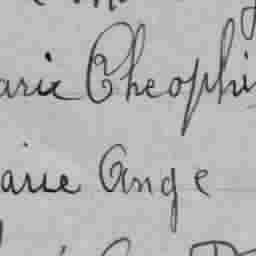 arie Cheophi
arie Ange